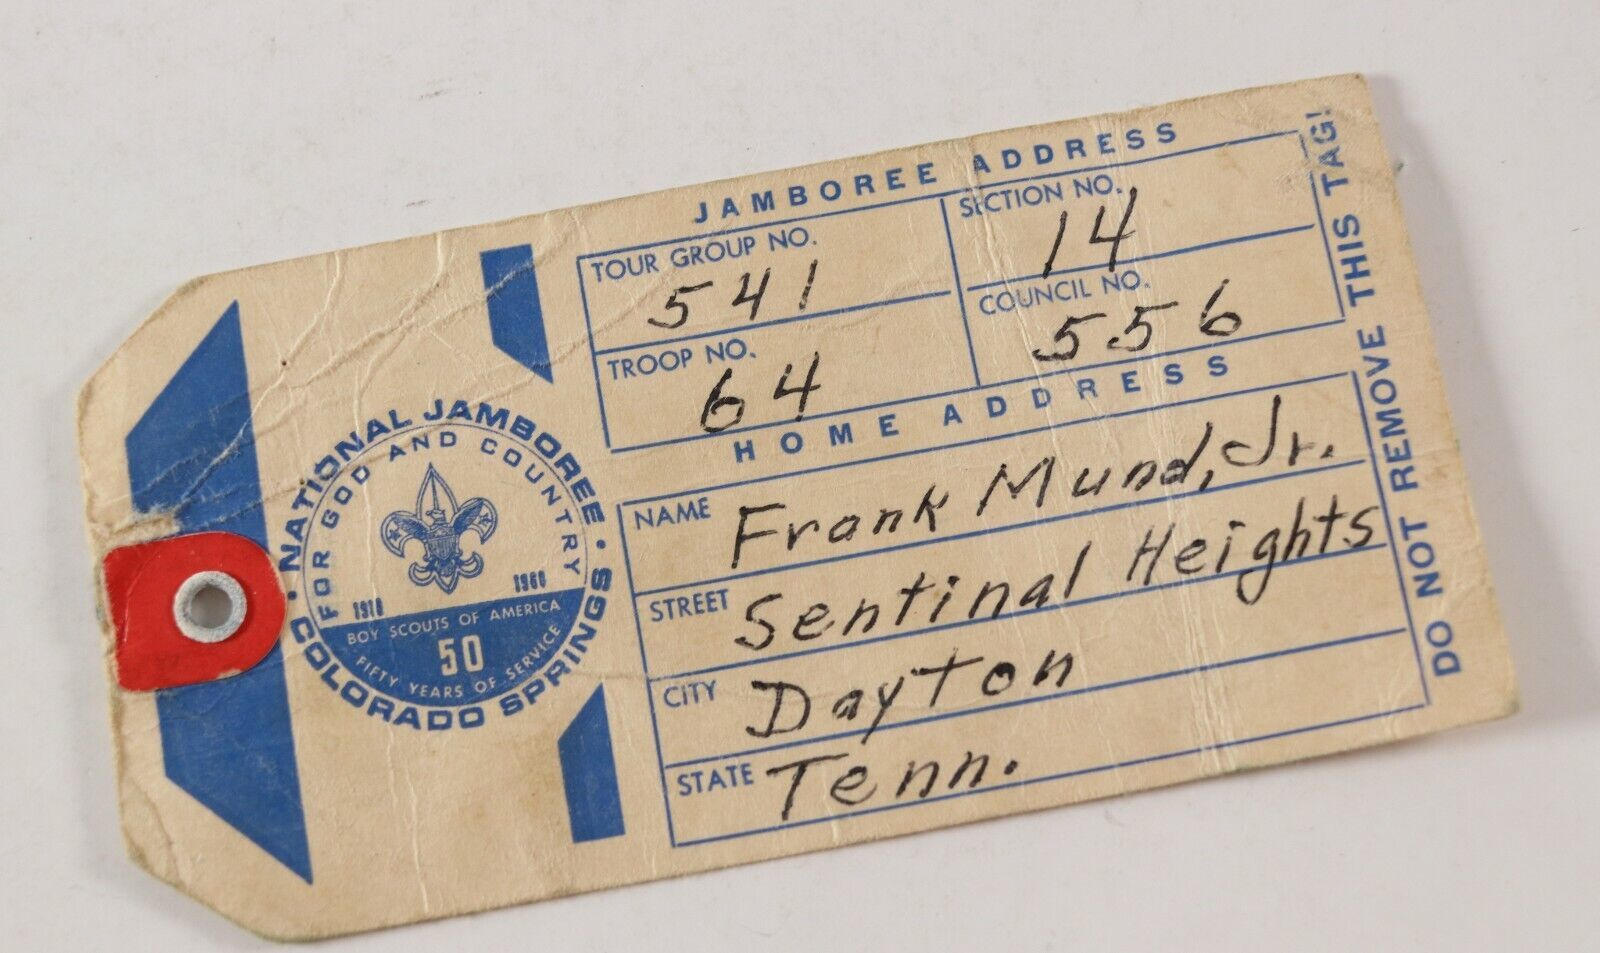 NATIONAL JAMBOREE
FOR GOD AND COUNTRY
1910 1960
BOY SCOUTS OF AMERICA
50
FIFTY YEARS OF SERVICE
COLORADO SPRINGS
JAMBOREE ADDRESS
TOUR GROUP NO. 541
SECTION NO. 14
TROOP NO. 64
COUNCIL NO. 556
HOME ADDRESS
NAME Frank Mund, Jr.
STREET Sentinal Heights
CITY Dayton
STATE Tenn.
DO NOT REMOVE THIS TAG!